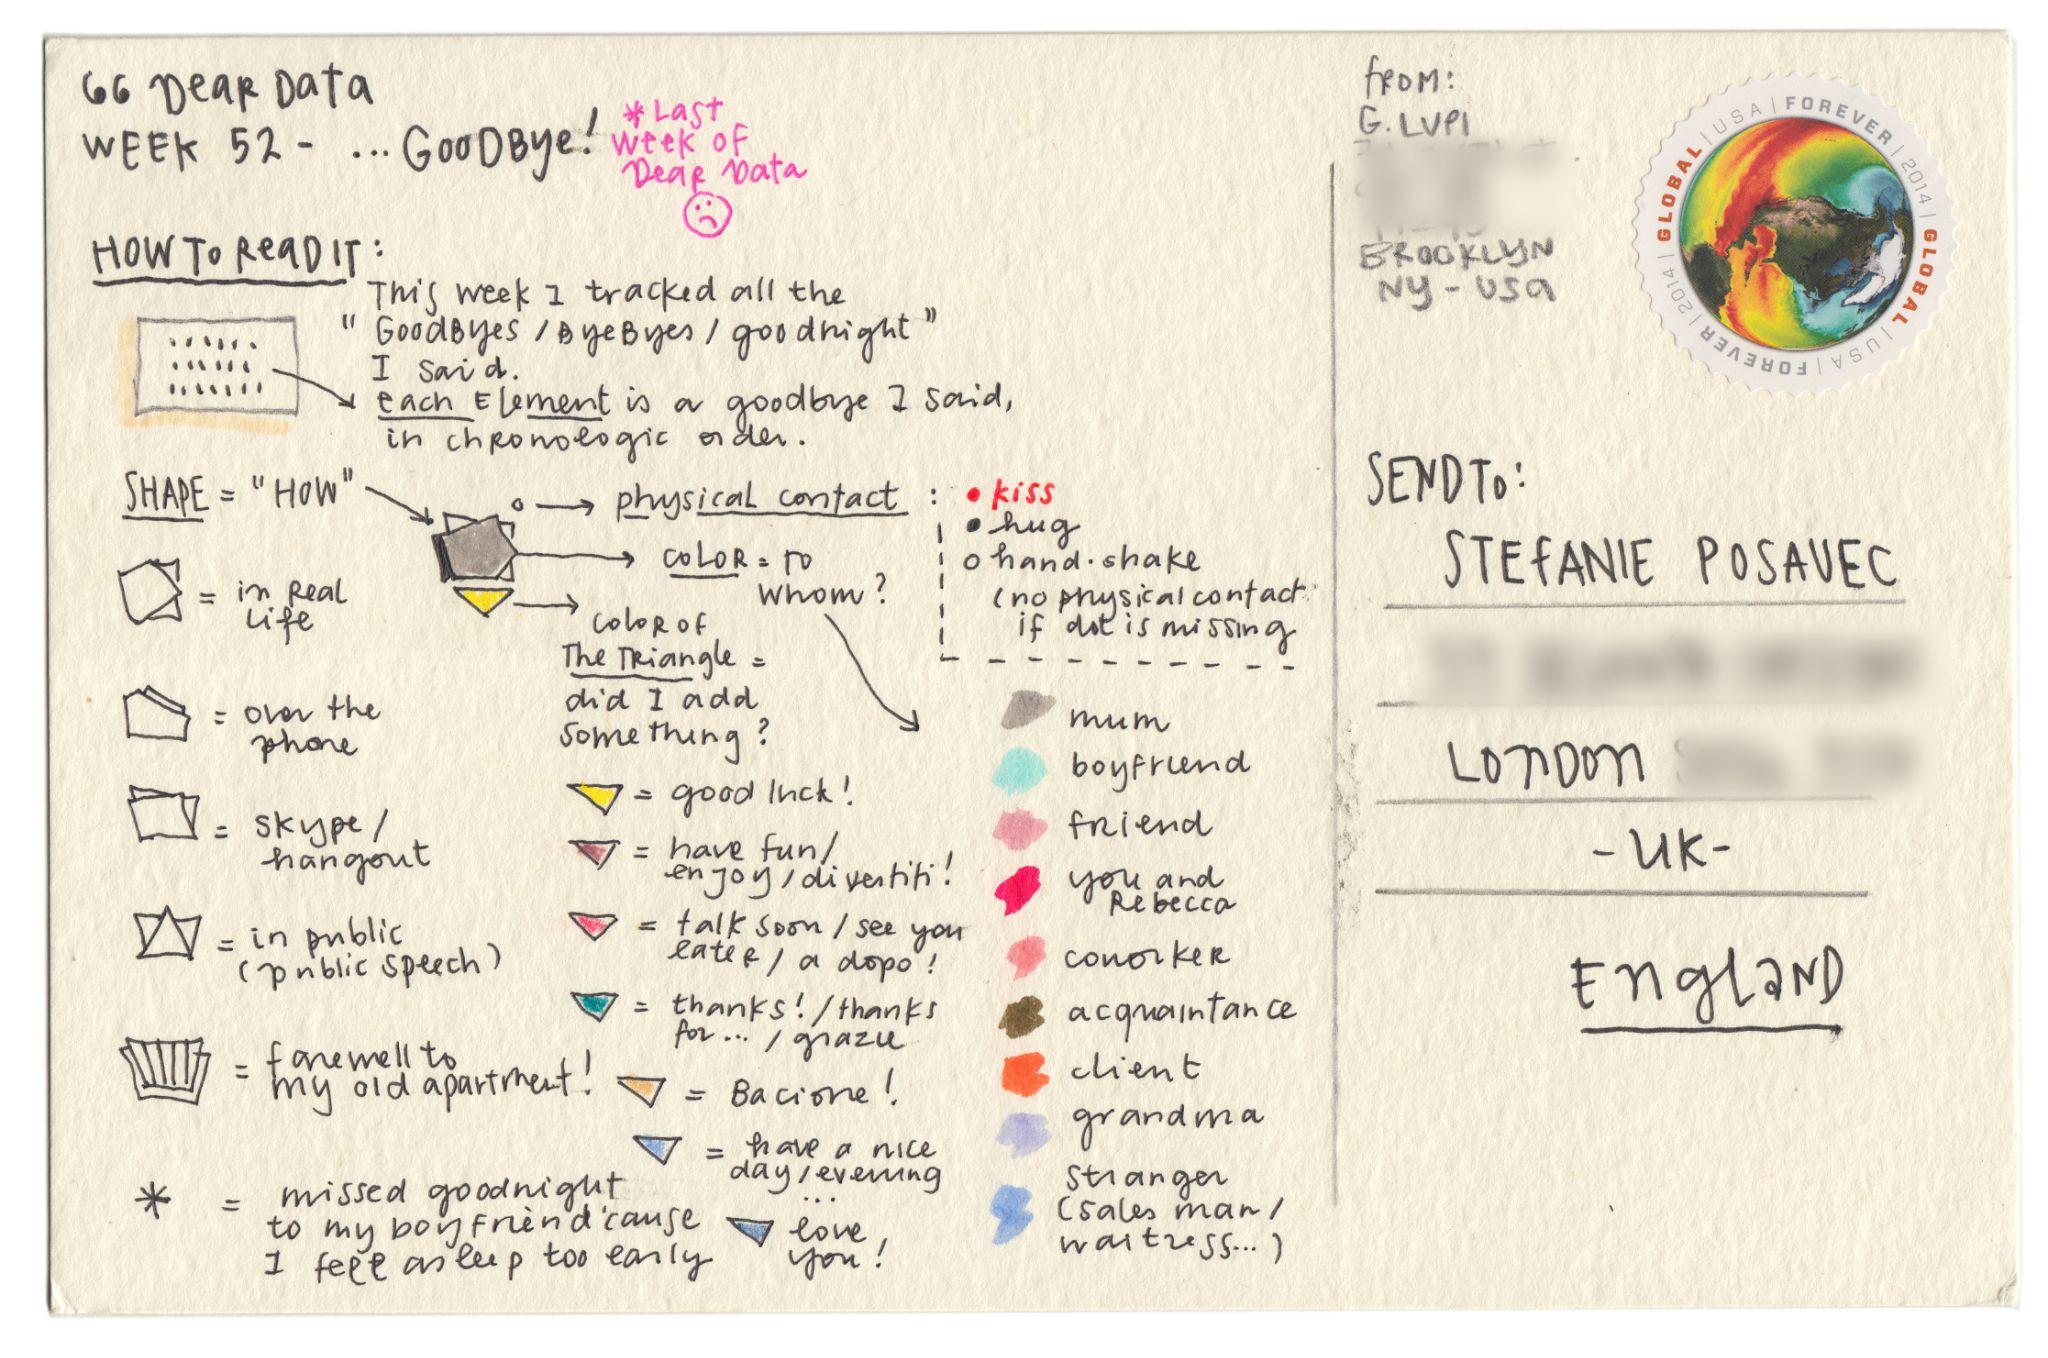 GG DEAR DATA
WEEK 52 - ... GOODBYE!
*Last
week of
Dear Data
HOW TO READ IT:
This week I tracked all the
"GoodByes / ByeByes / goodnight"
I said.
each Element is a goodbye I said,
in chronologic order.
SHAPE = "HOW"
physical contact:
• kiss
• hug
o hand-shake
(no physical contact
if dot is missing
COLOR = TO
WHOM?
COLOR OF
The Triangle =
did I add
something?
= in Real
Life
= over the
phone
= skype/
hangout
= in public
(public speech)
= farewell to
my old apartment!
* = missed goodnight
to my boyfriend 'cause
I fell asleep too early
= good luck!
= have fun/
enjoy/divertiti!
= talk soon/see you
later/a dopo!
= thanks!/thanks
for.../grazie
= Bacione!
= have a nice
day/evening
...
love
you!
mum
boyfriend
friend
you and
Rebecca
coworker
acquaintance
client
grandma
stranger
(sales man/
waitress...)
FROM:
G. LUPI
BROOKLYN
NY - USA
GLOBAL | USA | FOREVER | 2014 | GLOBAL | USA | FOREVER | 2014 |
SEND TO:
STEFANIE POSAVEC
LONDON
- UK -
ENGLAND